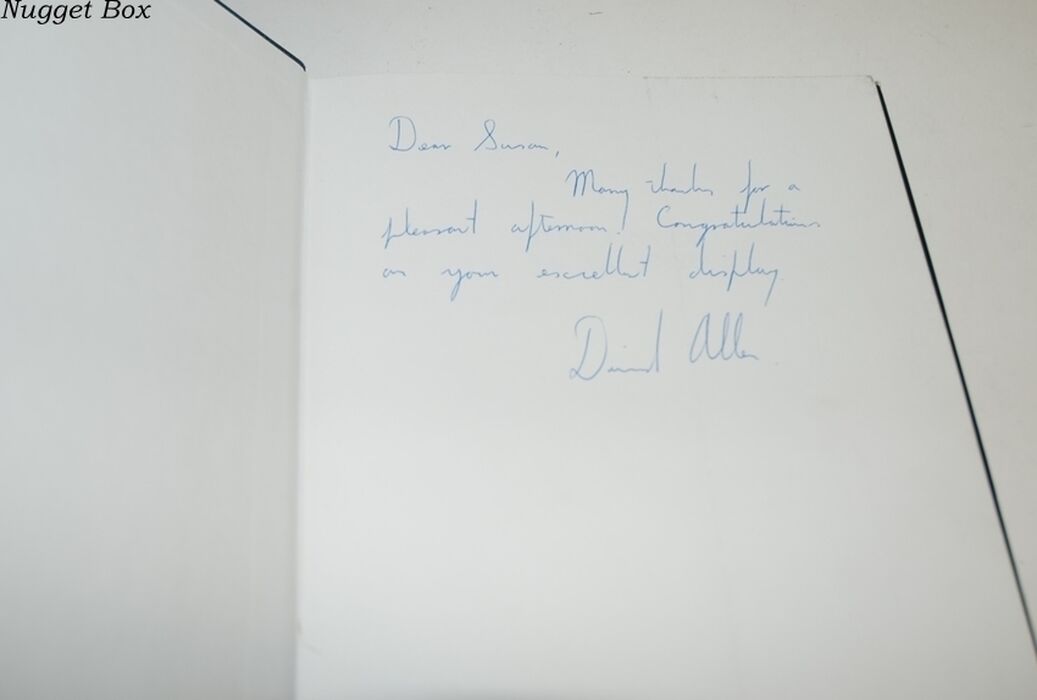 Nugget Box
Dear Susan,
Many thanks for a
pleasant afternoon! Congratulations
on your excellent display
David Allen